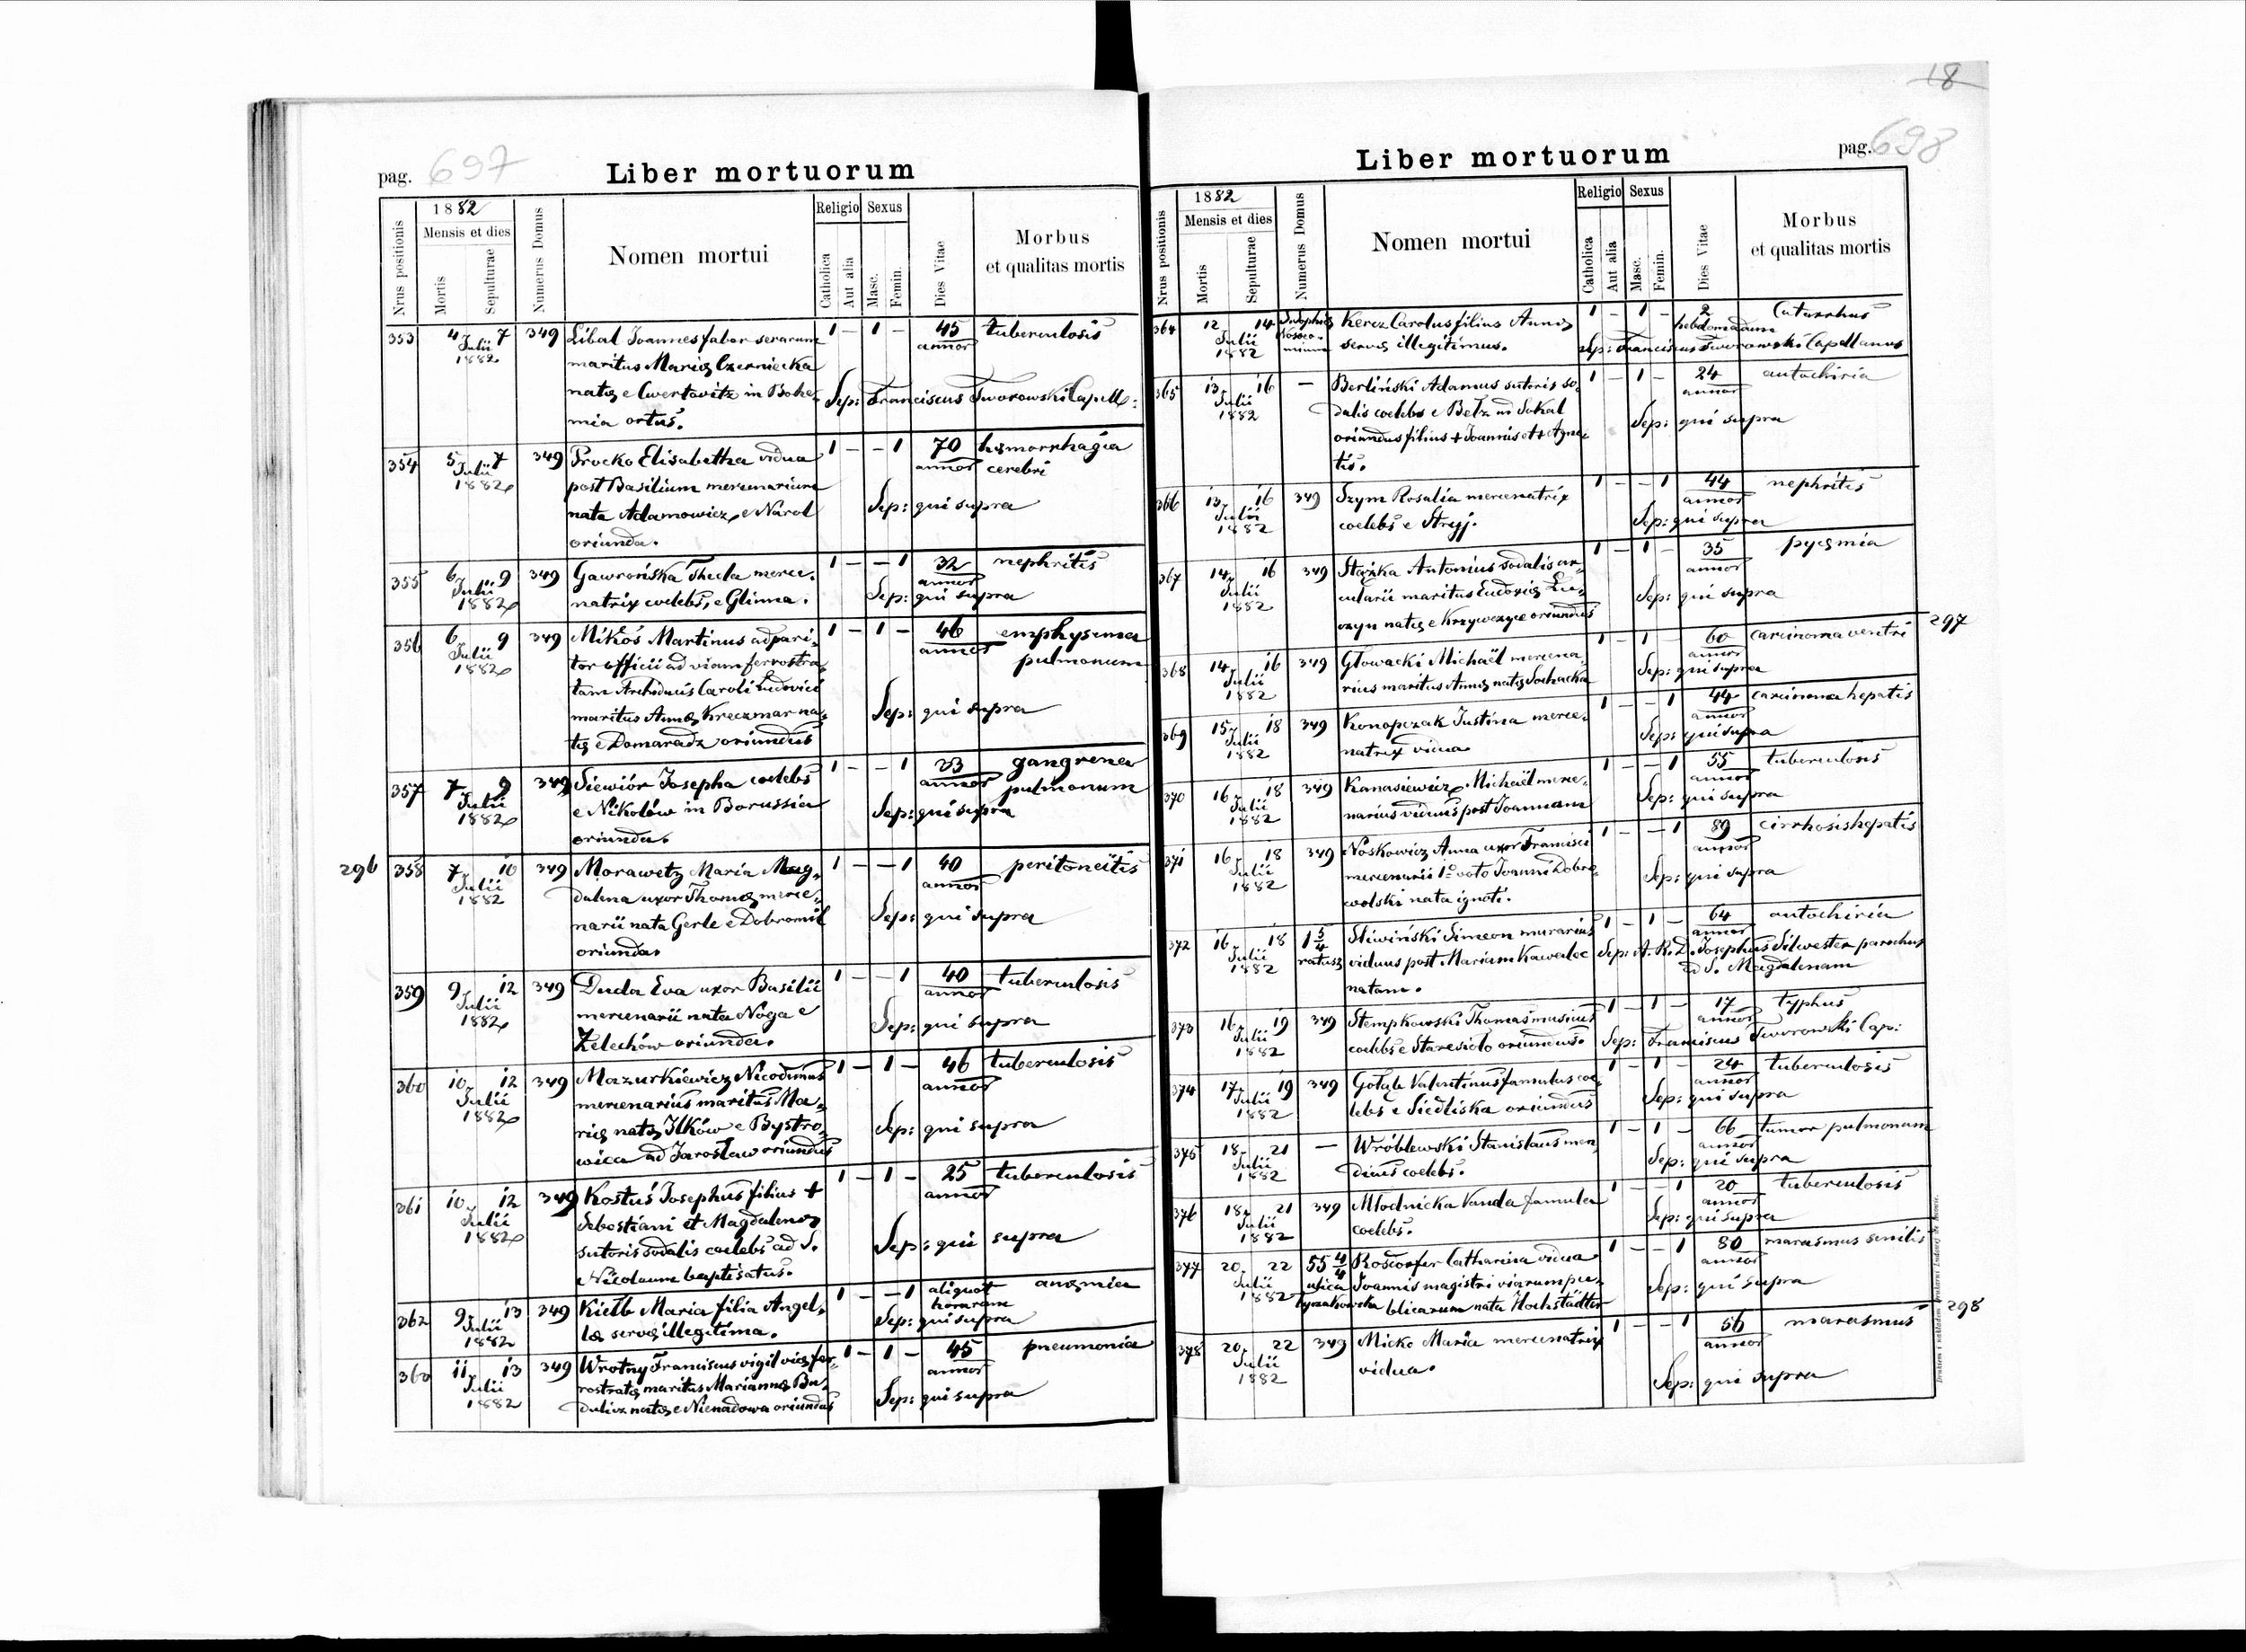 pag. 697
Liber mortuorum
Nrus positionis
1882
Mensis et dies
Mortis
Sepulturae
Numerus Domus
Nomen mortui
Religio
Catholica
Aut alia
Sexus
Masc.
Femin.
Dies Vitae
Morbus
et qualitas mortis
353 4 7 349 Libal Joannes faber serarum 1 – 1 – 45 tuberculosis
Julii annor
1882 maritus Mariæ Czerniecka
natæ e Cwertovitz in Bohe- Sep: Franciscus Tworowski Capell:
mia ortus.
354 5 7 349 Procko Elisabetha vidua 1 – – 1 70 hæmorrhagia
Julii post Basilium mercenarium annor cerebri
1882 nata Adamowicz, e Narol Sep: qui supra
oriunda.
355 6 9 349 Gawrońska Thecla merce- 1 – – 1 32 nephritis
Julii annor
1882 natrix coelebs, e Glinna. Sep: qui supra
356 6 9 349 Mikoś Martinus adpari- 1 – 1 – 46 emphysema
Julii tor officii ad viam ferrostra- annor pulmonum
1882 tam Archiducis Caroli Ludovici
maritus Annæ Kreczmar na- Sep: qui supra
tæ e Domaradz oriundus
357 7 9 349 Siewiór Josepha coelebs 1 – – 1 23 gangrena
Julii e Nikolów in Borussia annor pulmonum
1882 oriunda. Sep: qui supra
296 358 7 10 349 Morawetz Maria Mag- 1 – – 1 40 peritoneitis
Julii dalena uxor Thomæ merce- annor
1882 narii nata Gerle e Dobromil Sep: qui supra
oriunda.
359 9 12 349 Duda Eva uxor Basilii 1 – – 1 40 tuberculosis
Julii mercenarii nata Noga e annor
1882 Żelechów oriunda. Sep: qui supra
360 10 12 349 Mazurkiewicz Nicodemus 1 – 1 – 46 tuberculosis
Julii mercenarius maritus Ma- annor
1882 riæ natæ Ilków e Bystro- Sep: qui supra
wica ad Jarosław oriundus
361 10 12 349 Kostuś Josephus filius + 1 – 1 – 25 tuberculosis
Julii Sebastiani et Magdalenæ annor
1882 sutoris sodalis coelebs ad S. Sep: qui supra
Nicolaum baptisatus.
362 9 13 349 Kielb Maria filia Angel- 1 – – 1 aliquot anæmia
Julii horarum
1882 læ servæ illegitima. Sep: qui supra
363 11 13 349 Wrotny Franciscus vigil viæ fer- 1 – 1 – 45 pneumonia
Julii rostratæ maritus Mariannæ Ba- annor
1882 natæ e Nienadowa oriundus Sep: qui supra
18
pag. 698
Liber mortuorum
Nrus positionis
1882
Mensis et dies
Mortis
Sepulturae
Numerus Domus
Nomen mortui
Religio
Catholica
Aut alia
Sexus
Masc.
Femin.
Dies Vitae
Morbus
et qualitas mortis
364 12 14 Kercz Carolus filius Annæ 1 – 1 – 2 Catarrhus
Julii hebdomadum
1882 servæ illegitimus. Sep: Franciscus Tworowski Capellanus
365 13 16 – Berliński Adamus sutoris so- 1 – 1 – 24 autochiria
Julii dalis coelebs e Bełz ad Sokal annor
1882 oriundus filius + Joannis et + Agne- Sep: qui supra
tis.
366 13 16 349 Szym Rosalia mercenatrix 1 – – 1 44 nephritis
Julii annor
1882 coelebs e Stryj. Sep: qui supra
367 14 16 349 Stążka Antonius sodalis ar- 1 – 1 – 35 pyæmia
Julii cularii maritus Eudoxiæ Lu- annor
1882 czyn natæ e Krzywczyce oriundus Sep: qui supra
368 14 16 349 Głowacki Michaël mercena- 1 – 1 – 60 carcinoma ventri 297
Julii annor
1882 rius maritus Annæ natæ Sochacka Sep: qui supra
369 15 18 349 Konopczak Justina merce- 1 – – 1 44 carcinoma hepatis
Julii annor
1882 natrix vidua Sep: qui supra
370 16 18 349 Kanasiewicz Michaël merce- 1 – – 1 55 tuberculosis
Julii annor
1882 narius viduus post Joannam Sep: qui supra
371 16 18 349 Noskowicz Anna uxor Francisci 1 – – 1 89 cirrhosis hepatis
Julii mercenarii 1º voto Joanni Dobro- annor
1882 wolski nata ignoti. Sep: qui supra
372 16 18 1 5/4 Śliwiński Simeon murarius 1 – 1 – 64 autochiria
Julii ratusz viduus post Mariam Kawalec annor
1882 natam. Sep: A. R. D. Josephus Silwester parochus
ad S. Magdalenam
373 16 19 349 Stempkowski Thomas musicus 1 – 1 – 17 typhus
Julii annor
1882 coelebs e Staresioło oriundus. Sep: Franciscus Tworowski Cap:
374 17 19 349 Gołąb Valentinus famulus coe- 1 – 1 – 24 tuberculosis
Julii annor
1882 lebs e Siedliska oriundus Sep: qui supra
375 18 21 – Wróblewski Stanislaus men- 1 – 1 – 66 tumor pulmonum
Julii annor
1882 dicus coelebs. Sep: qui supra
376 18 21 349 Młodnicka Vanda famula 1 – – 1 20 tuberculosis
Julii annor
1882 coelebs. Sep: qui supra
377 20 22 55 4/4 Roscorfer Catharina vidua 1 – – 1 80 marasmus senilis
Julii ulica Joannis magistri viarum pu- annor
1882 Łyczakowska blicarum nata Hochstädter Sep: qui supra
378 20 22 349 Micko Maria mercenatrix 1 – – 1 56 marasmus 298
Julii vidua. annor
1882 Sep: qui supra